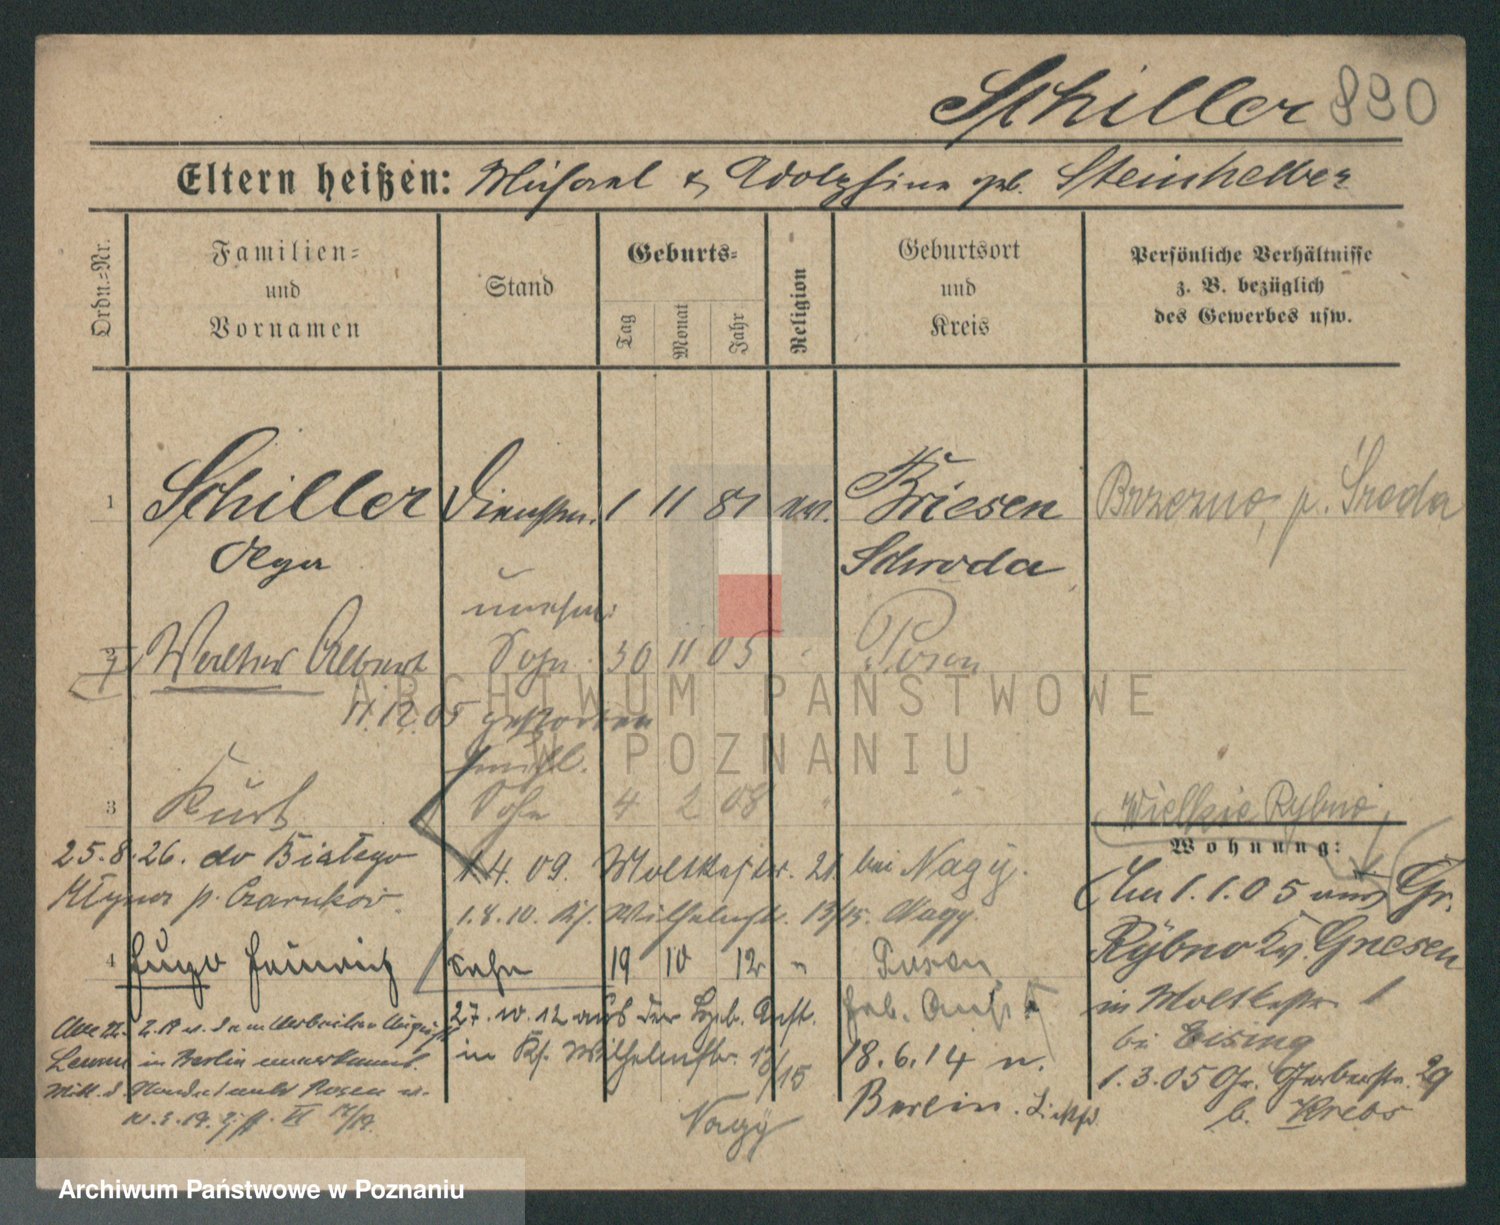 Schiller 890
Eltern heißen: Michael & Adolphine geb. Steinhelber
Ordn.=Nr.
Familien=
und
Vornamen
Stand
Geburts=
Tag
Monat
Jahr
Religion
Geburtsort
und
Kreis
Persönliche Verhältnisse
z. B. bezüglich
des Gewerbes usw.
1 Schiller Dienstm. 1 11 81 ev. Briesen Brzezno, p. Środa
Olga Schroda
unehel:
2 Walter Albert Sohn 30 11 05 Posen
11.12.05 gestorben
unehl.
3 Kurt Sohn 4 2 08 " "
Wielkie Rybno
Wohnung:
25.8.26. do Białego
Młyna p. Czarnków.
1.4.09. Moltkestr. 21 bei Nagy.
1.8.10. Ks. Wilhelmstr. 13/15. Nagy.
Am 1.1.05 aus Gr.
Rybno Kr. Gnesen
in Moltkestr. 1
bei Eising
1.3.05 Gr. Gerberstr. 29
b. Krebs
4 Hugo Heinrich Sohn 19 10 12 " Posen
27.10.12 aus der Heb. Anst.
in Ks. Wilhelmstr. 13/15
Nagy
Heb. Anst.
18.6.14 n.
Berlin.
in Berlin anerkannt.
ARCHIWUM PAŃSTWOWE
W POZNANIU
Archiwum Państwowe w Poznaniu